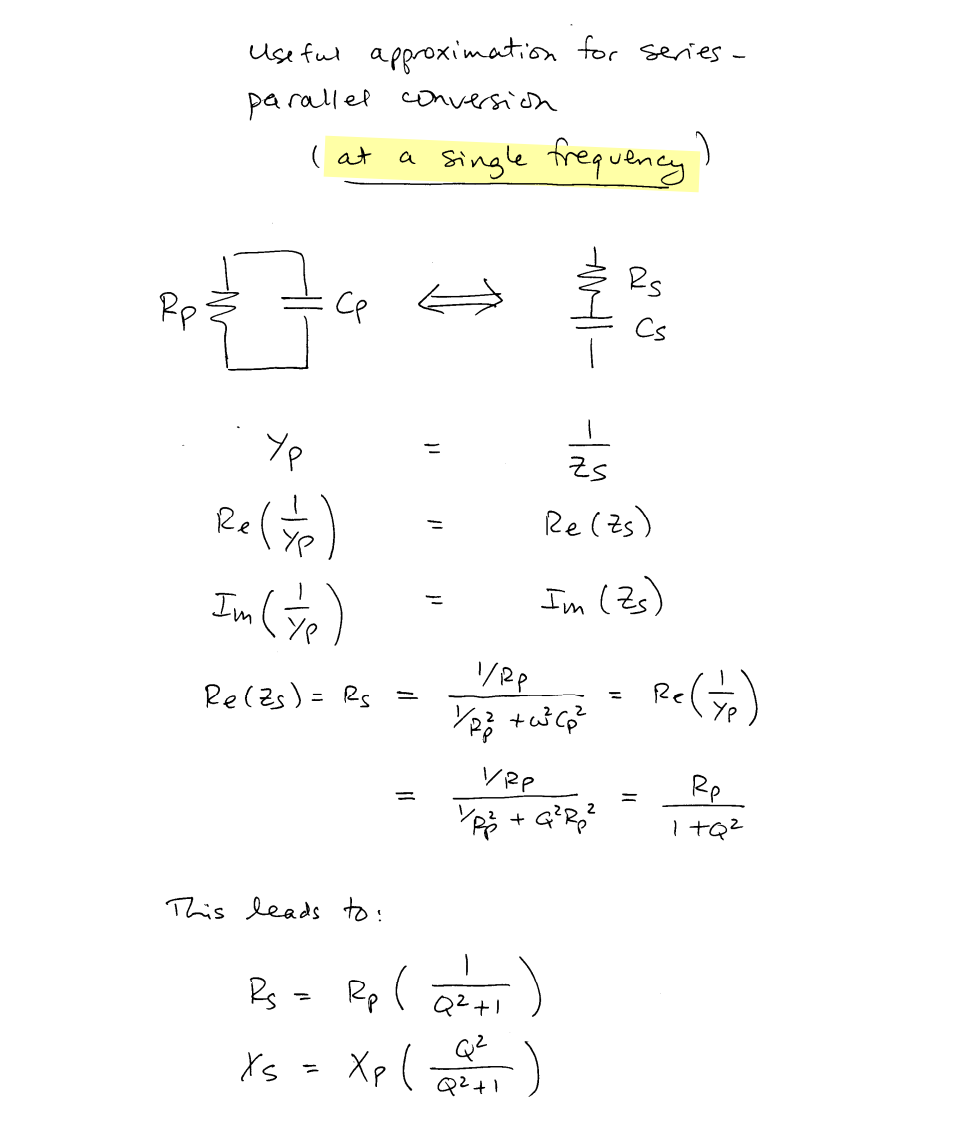 Useful approximation for series-
parallel conversion
(at a single frequency)
Rp Cp ⟺ Rs
Cs
Yp = 1/Zs
Re(1/Yp) = Re(Zs)
Im(1/Yp) = Im(Zs)
Re(Zs) = Rs = (1/Rp)/(1/Rp² + ω²Cp²) = Re(1/Yp)
= (1/Rp)/(1/Rp² + Q²Rp²) = Rp/(1+Q²)
This leads to:
Rs = Rp(1/(Q²+1))
Xs = Xp(Q²/(Q²+1))